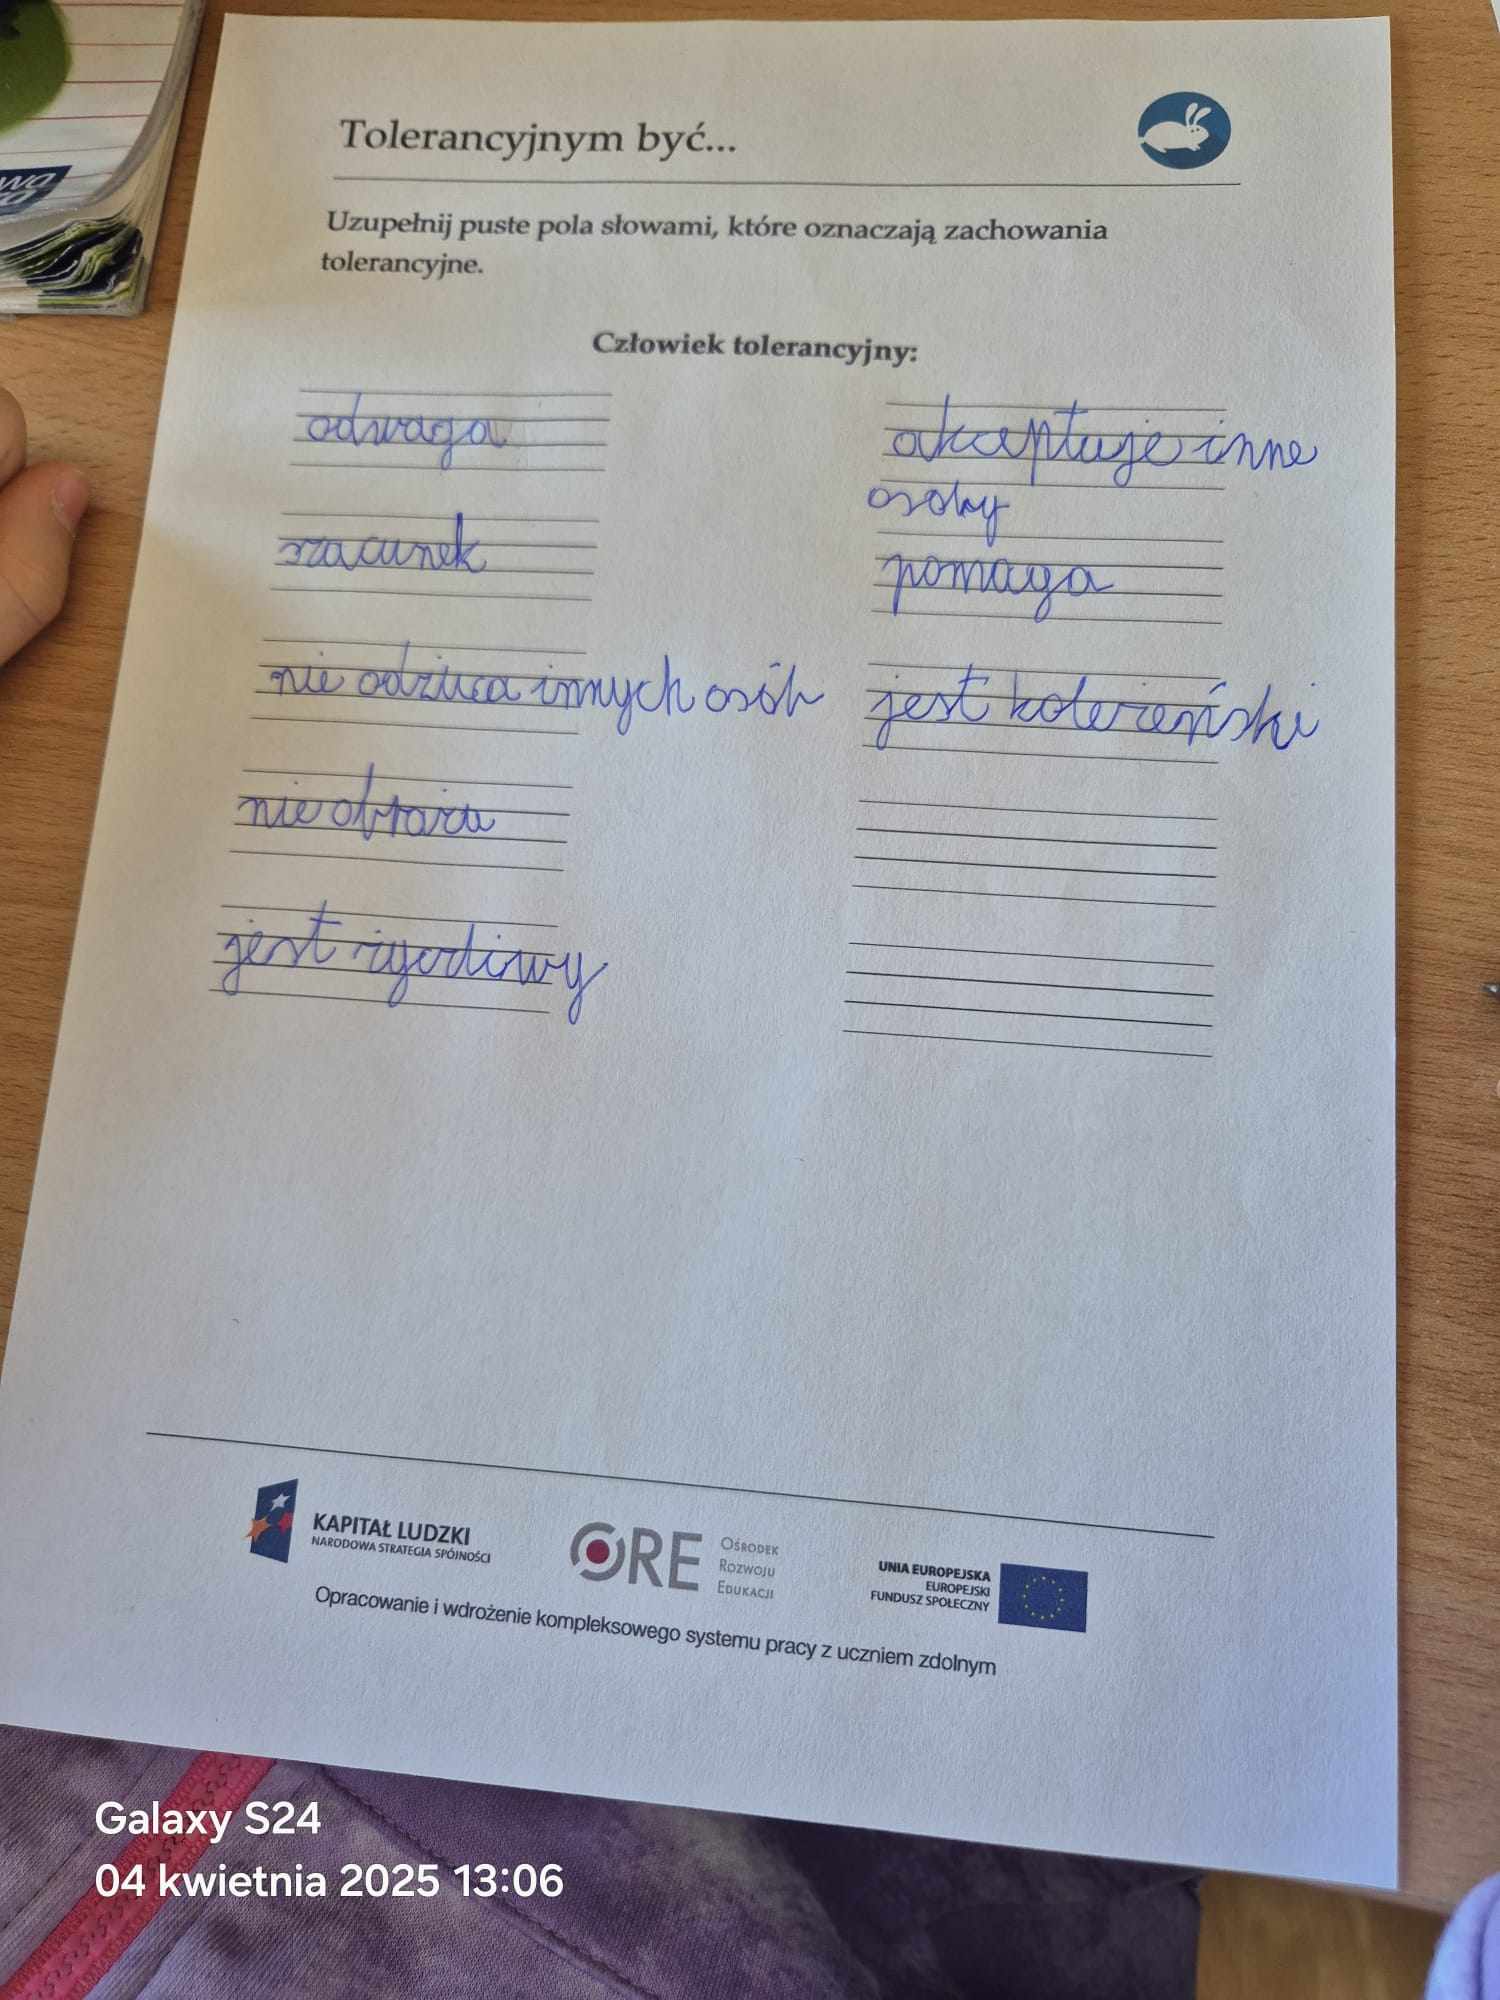 Tolerancyjnym być...
Uzupełnij puste pola słowami, które oznaczają zachowania
tolerancyjne.
Człowiek tolerancyjny:
odwaga
szacunek
nie odżuca innych osób
nie obraża
jest życzliwy
akceptuje inne
osoby
pomaga
jest koleżeński
KAPITAŁ LUDZKI
NARODOWA STRATEGIA SPÓJNOŚCI
ORE
OŚRODEK
ROZWOJU
EDUKACJI
UNIA EUROPEJSKA
EUROPEJSKI
FUNDUSZ SPOŁECZNY
Opracowanie i wdrożenie kompleksowego systemu pracy z uczniem zdolnym
Galaxy S24
04 kwietnia 2025 13:06